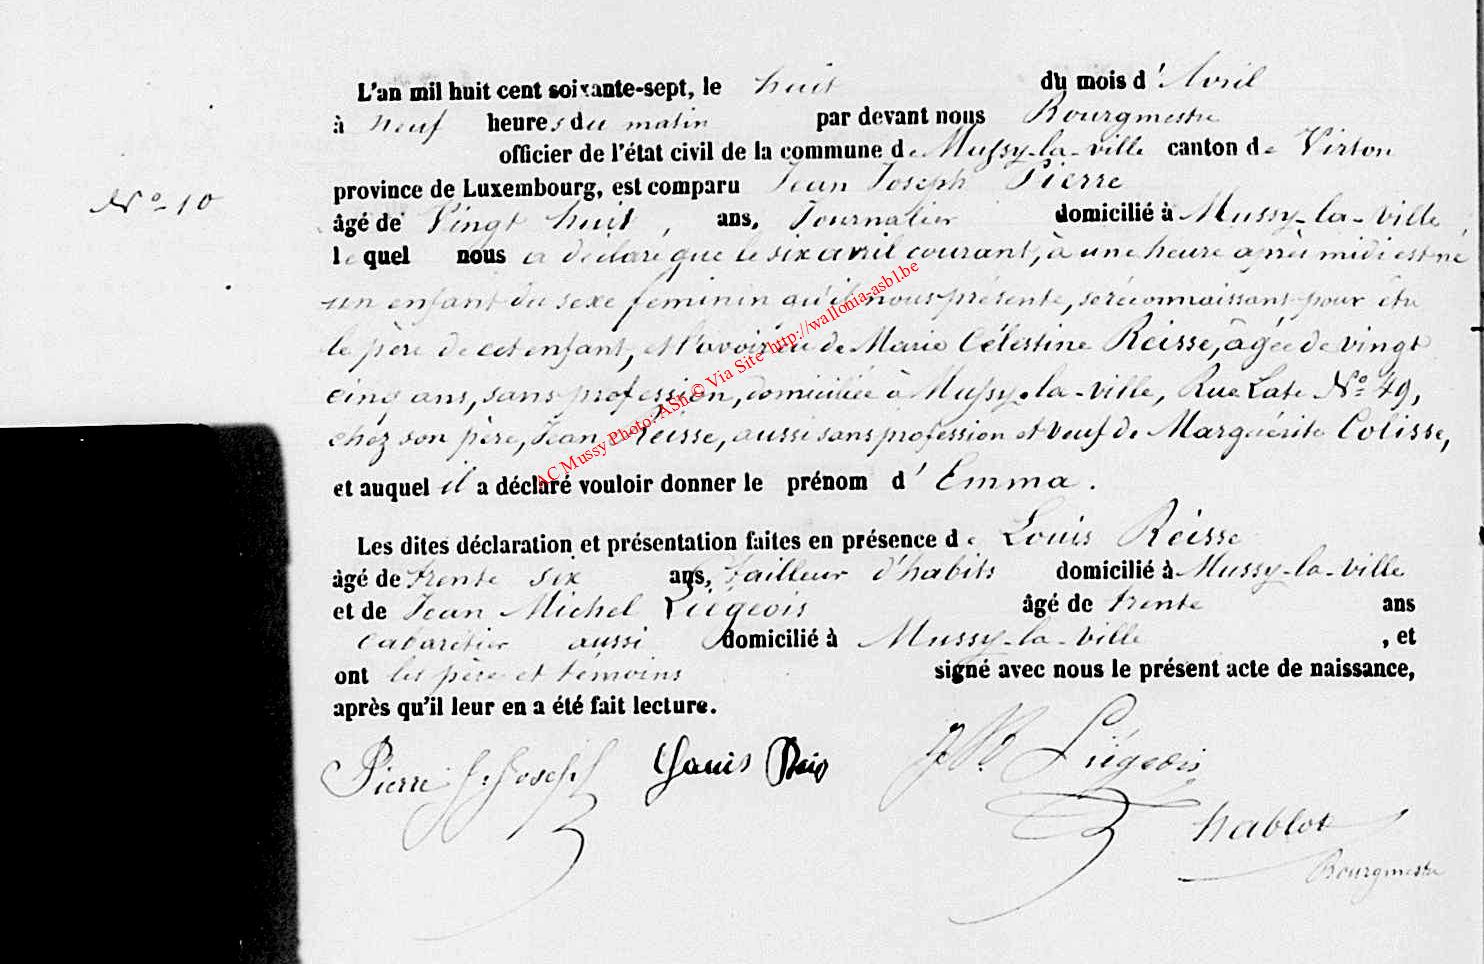 L'an mil huit cent soixante-sept, le huit du mois d'Avril
à neuf heures du matin par devant nous Bourgmestre
officier de l'état civil de la commune de Mussy-la-ville canton de Virton
N° 10
province de Luxembourg, est comparu Jean Joseph Pierre
âgé de Vingt huit, ans, Journalier domicilié à Mussy-la-ville,
lequel nous a déclaré que le six avril courant, à une heure après midi est né
un enfant du sexe féminin qu'il nous présente, se réconnaissant pour être
le père de cet enfant, et l'avoir eu de Marie Célestine Reisse, âgée de vingt
cinq ans, sans profession, domiciliée à Mussy-la-ville, Rue N° 49,
chez son père, Jean Reisse, aussi sans profession et Veuf de Marguérite Colisse,
et auquel il a déclaré vouloir donner le prénom d'Emma.
Les dites déclaration et présentation faites en présence de Louis Reisse
âgé de trente six ans, tailleur d'habits domicilié à Mussy-la-ville
et de Jean Michel Liégeois âgé de trente ans
cabaretier aussi domicilié à Mussy-la-ville, et
ont les père et témoins signé avec nous le présent acte de naissance,
après qu'il leur en a été fait lecture.
Pierre J. Joseph Louis Reis J M. Liégeois
hablot
Bourgmestre
AC Mussy Photo: ASh © Via Site http://wallonia-asbl.be